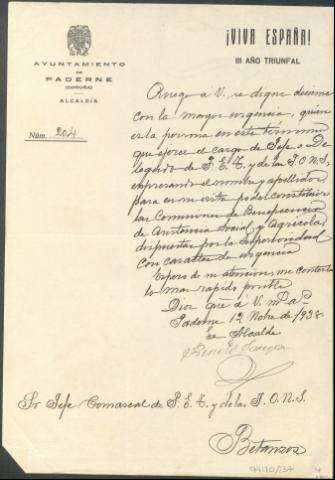 AYUNTAMIENTO
DE
PADERNE
(CORUÑA)
ALCALDÍA
Núm. 204
¡VIVA ESPAÑA!
III AÑO TRIUNFAL
Ruego á V. se digne decirme
con la mayor urgencia, quien
es la persona en este término
que ejerce el cargo de Jefe o De-
legado de F.E.T. y de las J.O.N.S.
expresando el nombre y apellidos
para en su vista poder constituir
las Comisiones de Beneficencia
de Asistencia Social y Agrícola,
dispuestas por la Superioridad
con caracter de urgencia
Espero de su atencion, me conteste
lo mas rápido posible
Dios gue á V. ms as
Paderne 12 Nbre de 1938
El Alcalde
Sr Jefe Comarcal de F.E.T. y de las J.O.N.S.
Betanzos